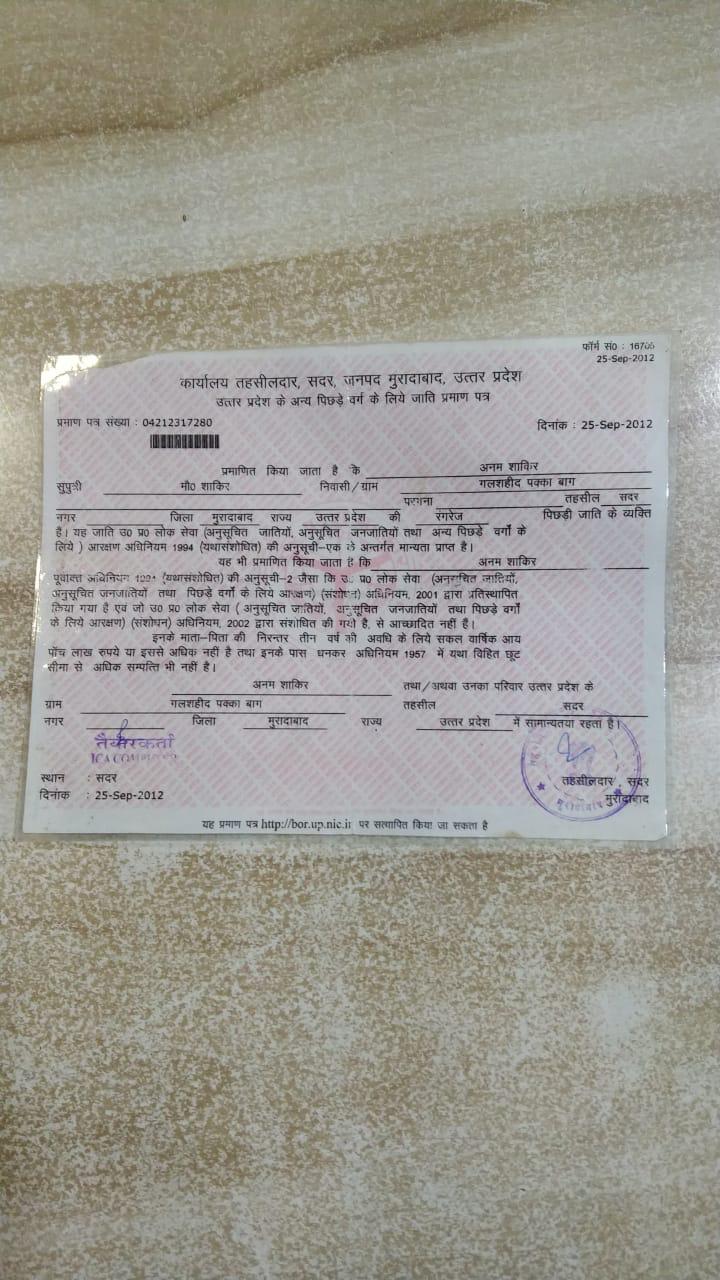 फॉर्म सं0 : 16705
25-Sep-2012
कार्यालय तहसीलदार, सदर, जनपद मुरादाबाद, उत्तर प्रदेश
उत्तर प्रदेश के अन्य पिछड़े वर्ग के लिये जाति प्रमाण पत्र
प्रमाण पत्र संख्या : 04212317280 दिनांक : 25-Sep-2012
प्रमाणित किया जाता है के अनम शाकिर
सुपुत्री मौ0 शाकिर निवासी/ग्राम गलशहीद पक्का बाग
परगना तहसील सदर
नगर जिला मुरादाबाद राज्य उत्तर प्रदेश की रंगरेज पिछड़ी जाति के व्यक्ति
है। यह जाति उ0 प्र0 लोक सेवा (अनुसूचित जातियों, अनुसूचित जनजातियों तथा अन्य पिछड़े वर्गों के
लिये ) आरक्षण अधिनियम 1994 (यथासंशोधित) की अनुसूची-एक के अन्तर्गत मान्यता प्राप्त है।
यह भी प्रमाणित किया जाता है कि अनम शाकिर
पूर्वोक्त अधिनियम 1994 (यथासंशोधित) की अनुसूची-2 जैसा कि उ0 प्र0 लोक सेवा (अनुसूचित जातियों,
अनुसूचित जनजातियों तथा पिछड़े वर्गों के लिये आरक्षण) (संशोधन) अधिनियम, 2001 द्वारा प्रतिस्थापित
किया गया है एवं जो उ0 प्र0 लोक सेवा ( अनुसूचित जातियों, अनुसूचित जनजातियों तथा पिछड़े वर्गों
के लिये आरक्षण) (संशोधन) अधिनियम, 2002 द्वारा संशोधित की गयी है, से आच्छादित नहीं हैं।
इनके माता-पिता की निरन्तर तीन वर्ष की अवधि के लिये सकल वार्षिक आय
पाँच लाख रुपये या इससे अधिक नहीं है तथा इनके पास धनकर अधिनियम 1957 में यथा विहित छूट
सीमा से अधिक सम्पत्ति भी नहीं है।
अनम शाकिर तथा/अथवा उनका परिवार उत्तर प्रदेश के
ग्राम गलशहीद पक्का बाग तहसील सदर
नगर जिला मुरादाबाद राज्य उत्तर प्रदेश में सामान्यतया रहता है।
तैयारकर्ता
तहसीलदार, सदर
स्थान : सदर
मुरादाबाद
दिनांक : 25-Sep-2012
मुरादाबाद
यह प्रमाण पत्र http://bor.up.nic.in पर सत्यापित किया जा सकता है